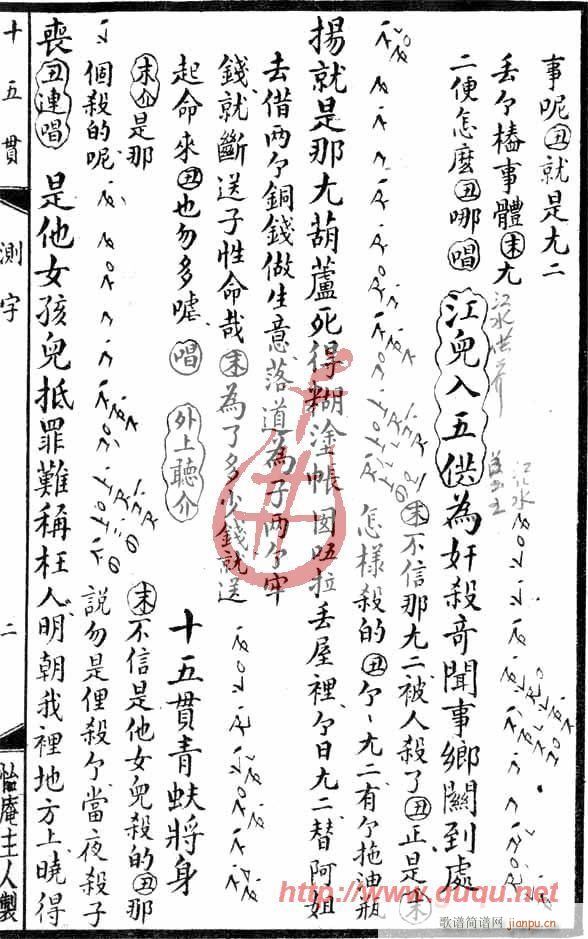 事呢丑就是尤二
丢个樁事體末尤
二便怎麽丑哪唱
江兒入五供為奸殺奇聞事鄉關到處
末不信那尤二被人殺了丑正是末
怎樣殺的丑个个尤二有个拖油瓶
揚就是那尤葫蘆死得糊塗帳因唔拉丢屋裡个日尤二替阿姐
去借兩个銅錢做生意落道為子兩个牢
錢就斷送子性命哉末為了多少錢就送
起命來丑也勿多噓唱
外上聽介
十五貫青蚨將身
末介是那
個殺的呢
末不信是他女兒殺的丑那
說勿是俚殺个當夜殺子
喪丑連唱是他女孩兒抵罪難稱枉人明朝我裡地方上曉得
十五貫
測字
二
怡庵主人製
江水供养
江兒水
http://www.guqu.net
歌谱简谱网
jianpu.cn